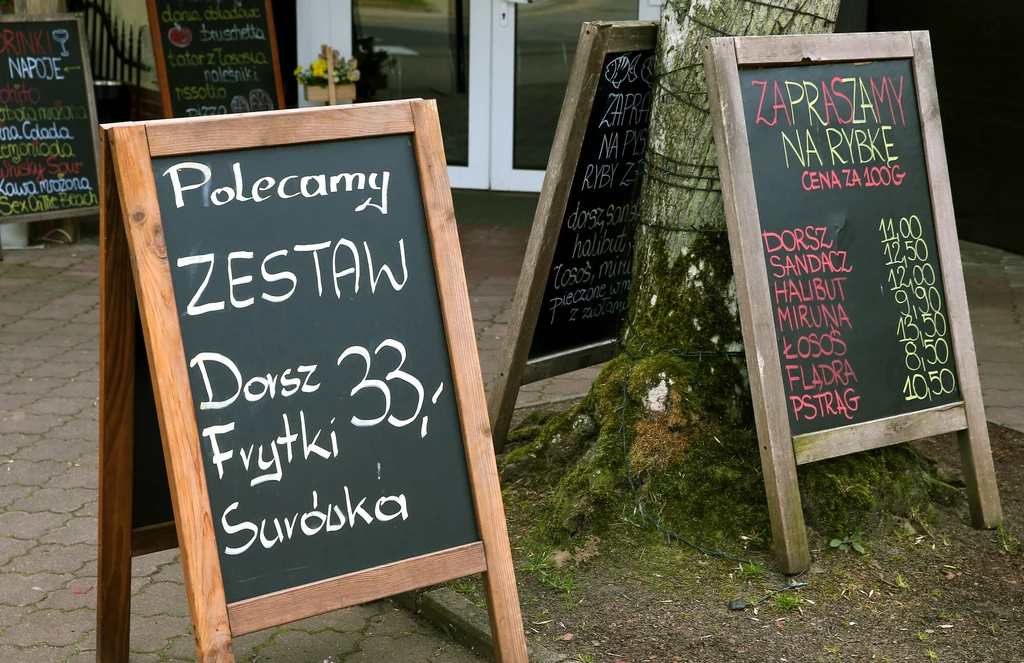 DRINKI
NAPOJE
Colada
Whisky Sour
Kawa mrożona
Sex On The Beach
dania obiadowe
bruschetta
tatar z łososia
naleśniki
Polecamy
ZESTAW
Dorsz 33,-
Frytki
Surówka
NA
RYBY
dorsz,
halibut
łosoś,
pieczone
ZAPRASZAMY
NA RYBKE
CENA ZA 100G
DORSZ 11,00
SANDACZ 12,50
HALIBUT 12,00
MIRUNA 9,90
ŁOSOŚ 13,50
FLĄDRA 8,50
PSTRĄG 10,50